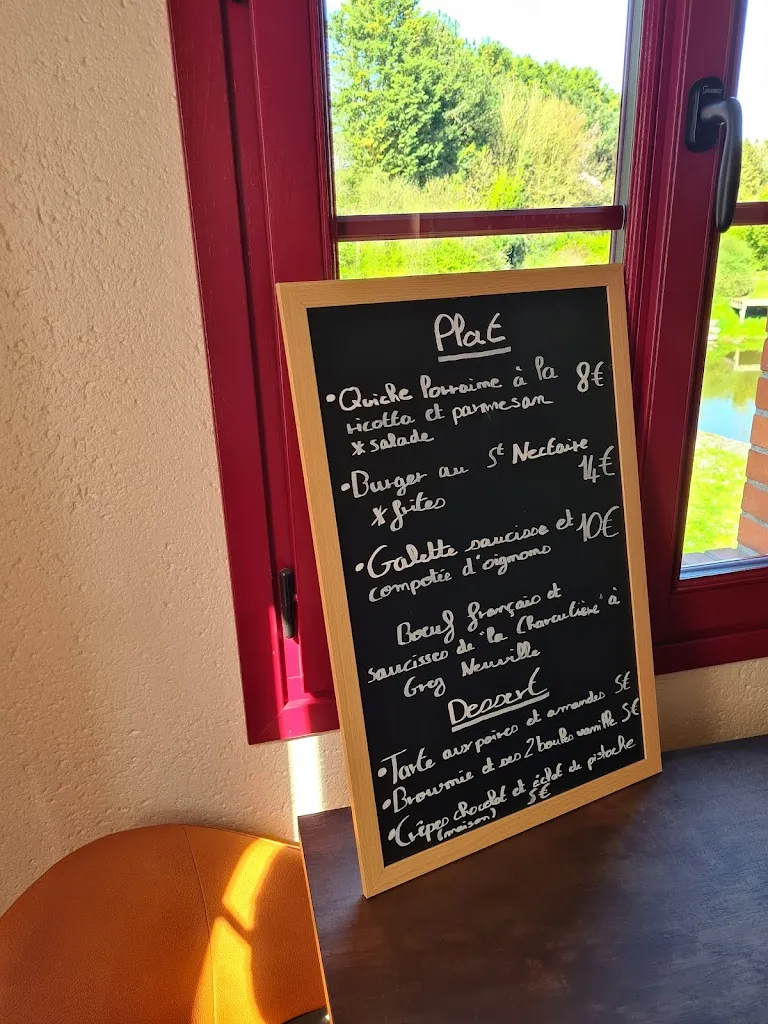 Plat
• Quiche Lorraine à la 8€
ricotta et parmesan
* salade
• Burger au St Nectaire 14€
* frites
• Galette saucisse et 10€
compotée d'oignons
Boeuf français et
saucisses de "la Charcutière" à
Grez Neuville
Dessert
• Tarte aux poires et amandes 5€
• Brownie et ses 2 boules vanille 5€
• Crêpes chocolat et éclat de pistache
(maison) 5€